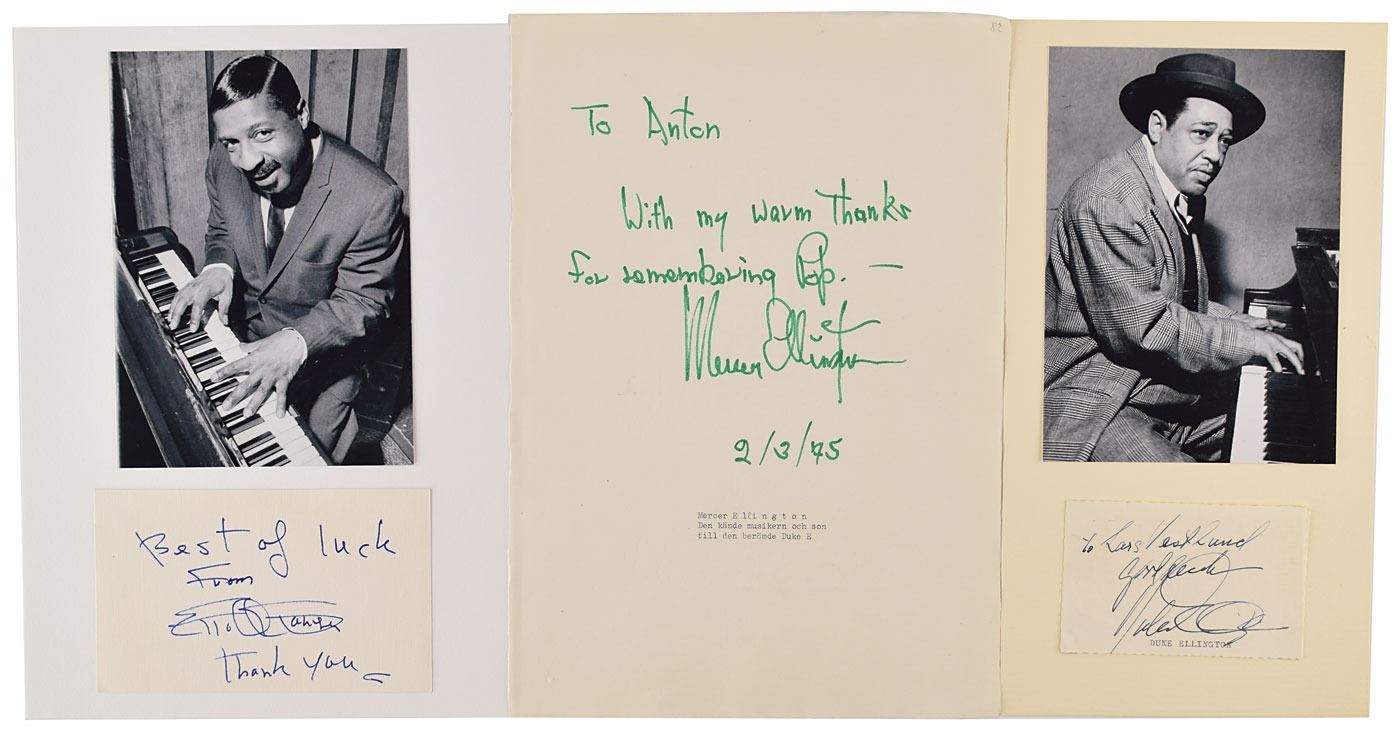 Best of luck
From
Erroll Garner
Thank you
82
To Anton
With my warm Thanks
for remembering Pop. —
Mercer Ellington
2/3/75
Mercer E lli n g t o n
Den kände musikern och son
till den berömde Duke E
To Lars Westlund
Good Luck
Duke Ellington
DUKE ELLINGTON